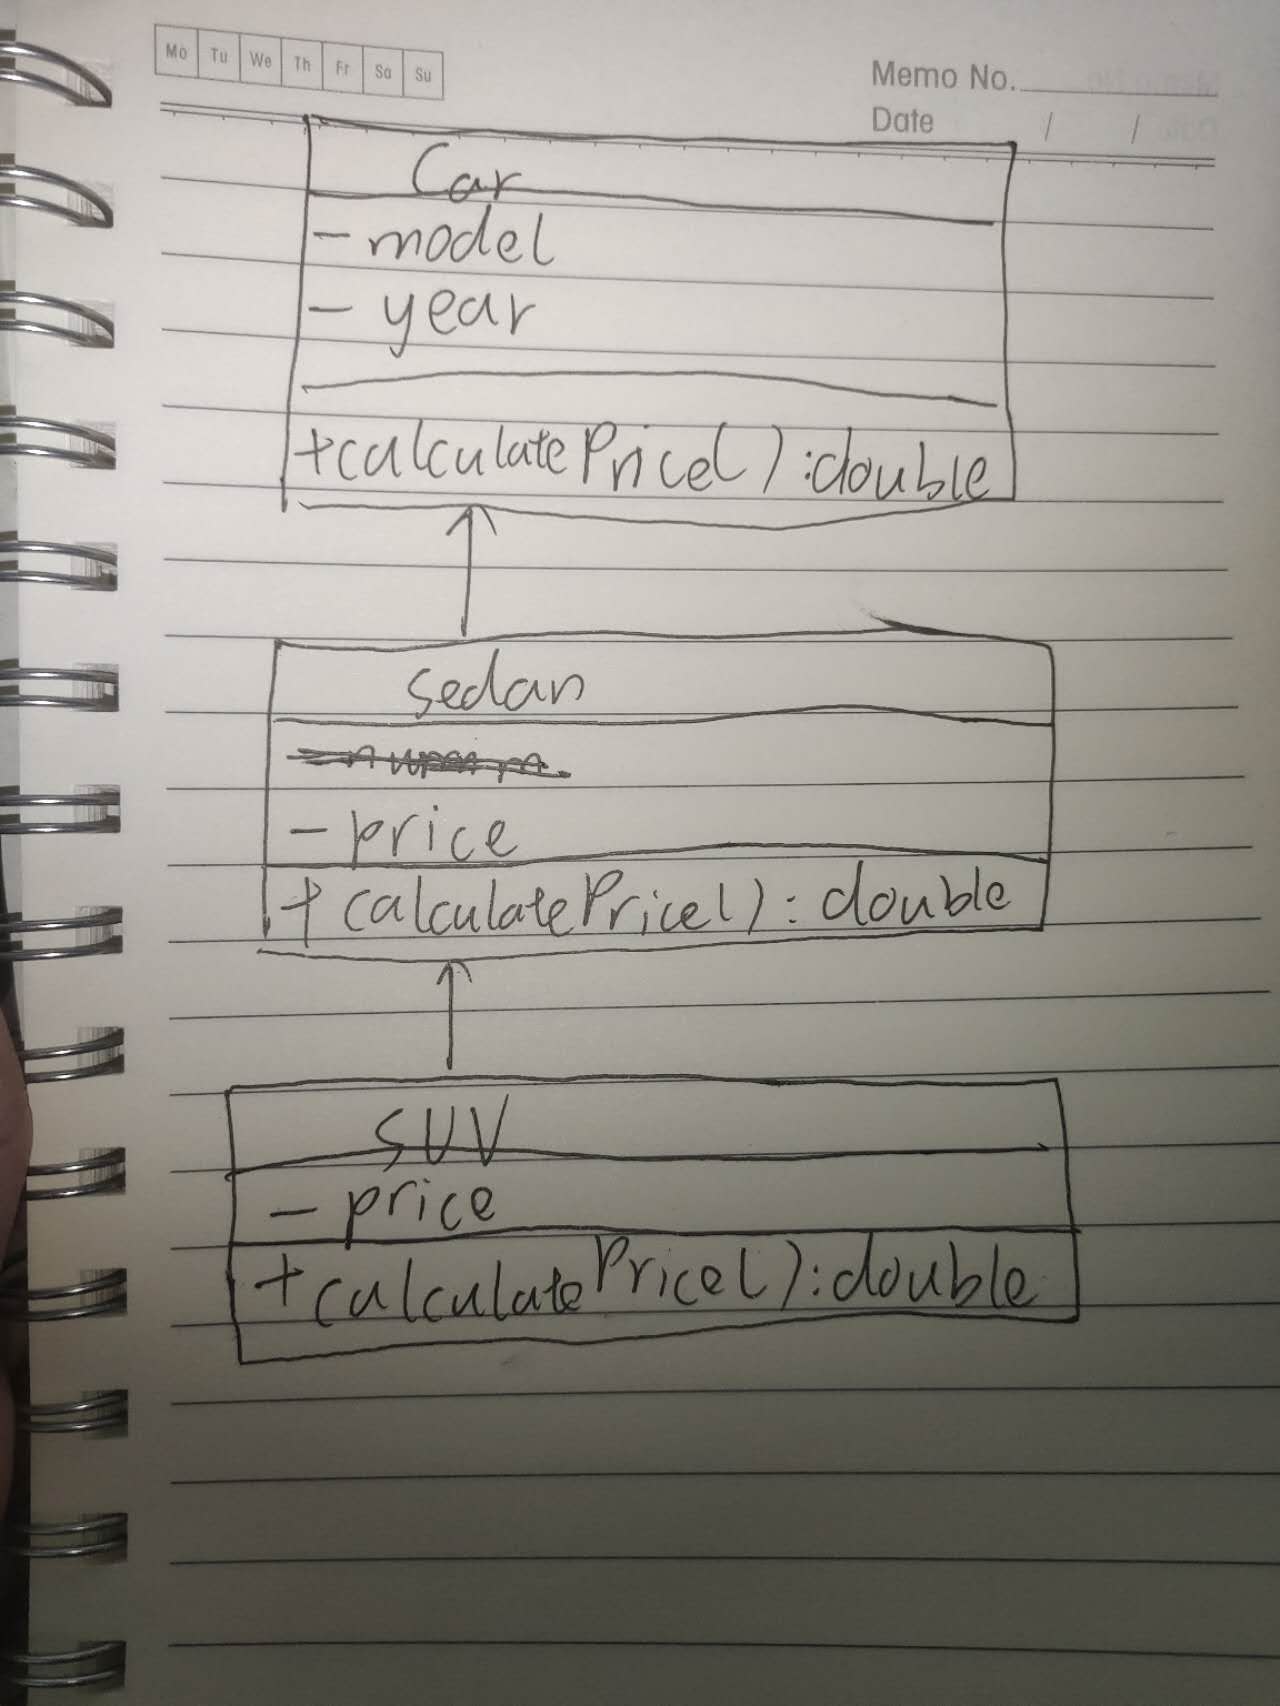 Mo Tu We Th Fr Sa Su
Memo No.
Date / /
Car
- model
- year
+calculatePrice():double
sedan
- price
+calculatePrice(): double
SUV
- price
+calculatePrice():double